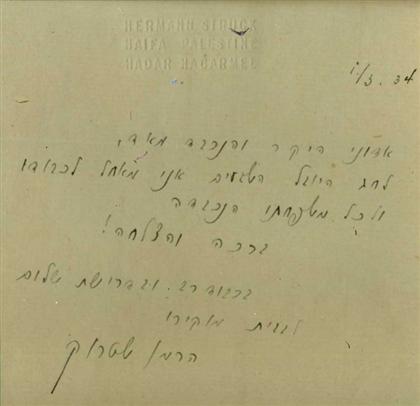 HERMANN STRUCK
HAIFA PALESTINE
HADAR HACARMEL
1/3. 34
אדוני היקר והנכבד מאד,
לחג היובל השבעים אני מאחל לכבודו
ולכל משפחתו הנכבדה
ברכה והצלחה!
בכבוד רב ובדרישת שלום
לבבית מוקירו
הרמן שטרוק